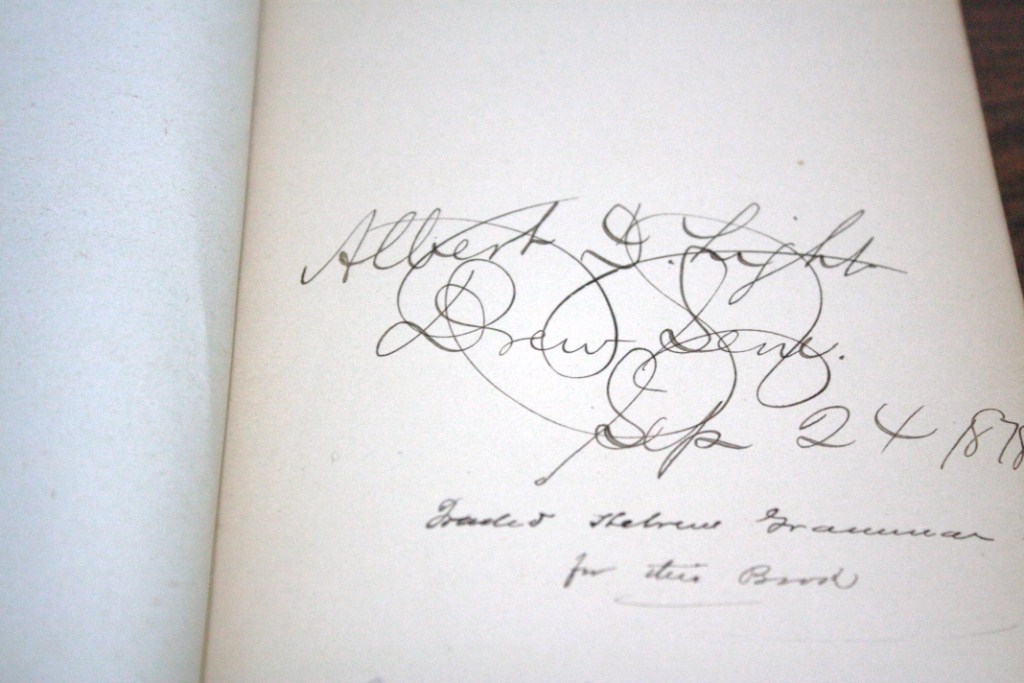 Albert D. Light
Drew Sem.
Sep 24 1878
Traded Hebrew Grammar
for this Book